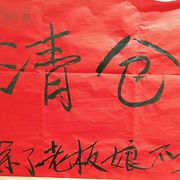 清仓
除了老板娘不